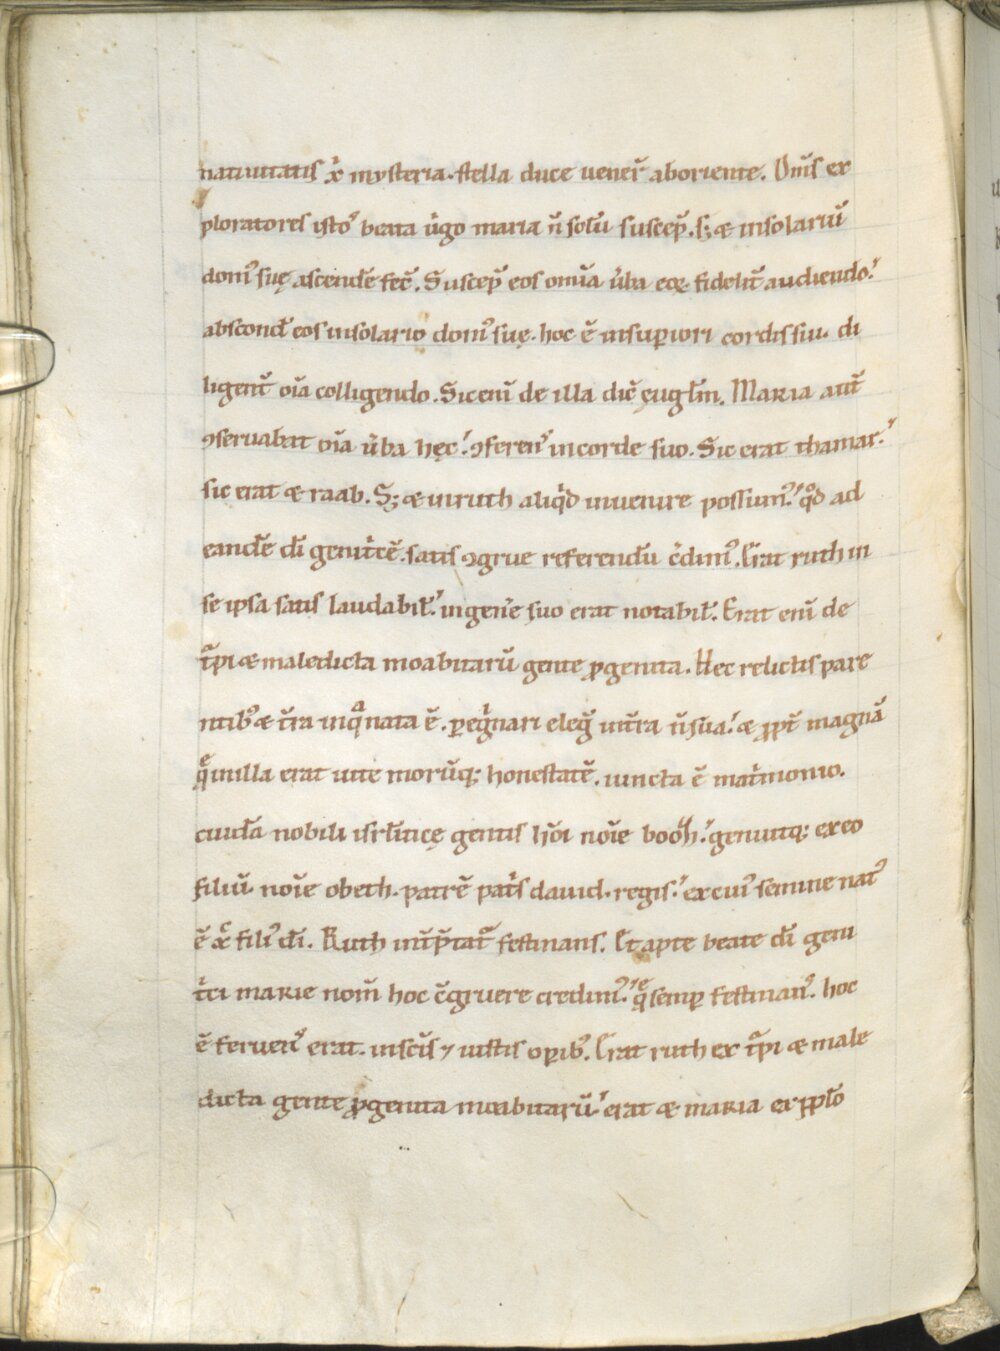 natiuitatis xp̄i mysteria. stella duce uener̄ aboriente. Om̄s ex
ploratores istoꝝ beata uͥgo maria n̄ solū suscep̄. s; & insolariū
domꝰ suę ascendēfec̄. Suscep̄ eos om̄ia ūba eoꝝ fidelit̄ audiendo.
abscond̄ eos insolario domꝰ suę. hoc ē insupiori cordis sui. di
ligent̄ oīa colligendo. Sic enī de illa dic̄ eugl̄m. Maria aut̄
ꝯseruabat oīa ūba hęc. ꝯferenſ incorde suo. Sic erat thamar.
sic erat & raab. S; & inruth aliqͥd inuenire possumꝰ. qͦd ad
eandē dī genitͥcē. satis ꝯgrue referendū c̄dimꝰ. Erat ruth in
se ipsa satis laudabil̄. ingene suo erat notabil̄. Erat enī de
tͣpi & maledicta moabitarū gente ꝓgenita. Hec relictis pare
ntibꝰ & t̄ra inqͣ nata ē. ꝑegͥnari eleḡ int̄ra n̄ sua. & ꝓpt̄ magnā
q̄ inilla erat uite morūq; honestatē. iuncta ē matͥmonio.
cuidā nobili isrl̄iticę gentis hōi noīe booth. genuitq; exeo
filiū noīe obeth. patrē patͥs dauid. regis. excuiꝰ semine natꝰ
ē xp̄c filiꝰ dī. Ruth int̄p̄tatͬ festinans. Et apte beate dī geni
tͥci marie nom̄ hoc c̄gruere credimꝰ. q̄ semp festinanſ. hoc
ē feruenſ erat. inscīs ⁊ iustis opibꝰ. Erat ruth ex tͣpi & male
dicta gente ꝓgenita moabitarū. erat & maria ex ppl̄o